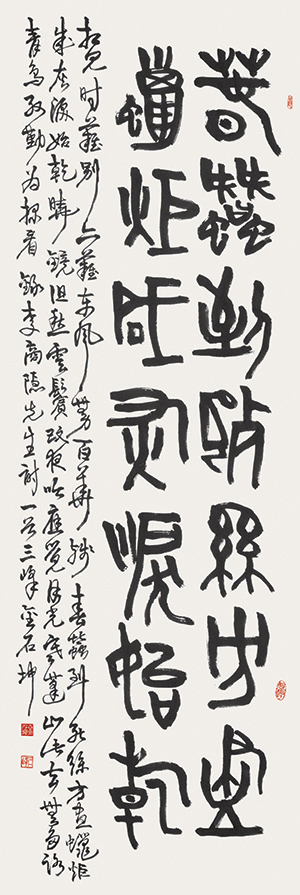 春蠶到死絲方盡
蠟炬成灰淚始乾
相見時難別亦難東風無力百華殘春蠶到死絲方盡蠟炬
成灰淚始乾曉鏡但愁雲鬢改夜吟應覺月光寒蓬山此去無多路
青鳥殷勤為探看錄李商隱先生詩一首三峰金石坤